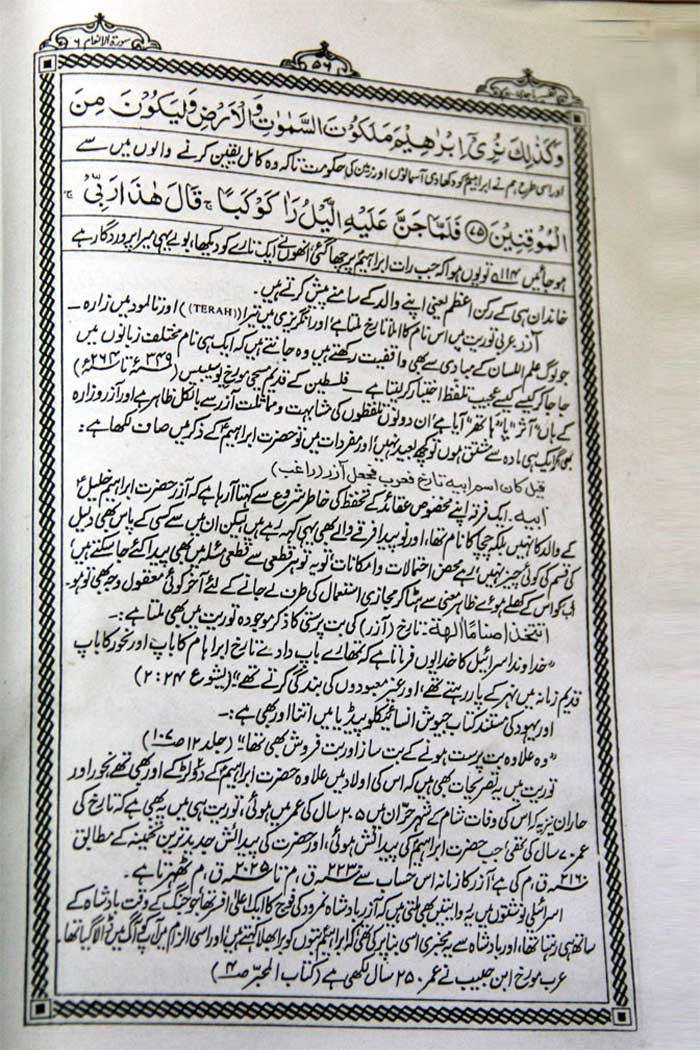 سورۃ الانعام ۶
۵۶
تفسیر ماجدی
وَكَذٰلِكَ نُرِيْۤ اِبْرٰهِيْمَ مَلَكُوْتَ السَّمٰوٰتِ وَالْاَرْضِ وَلِيَكُوْنَ مِنَ
اور اسی طرح ہم نے ابراہیمؑ کو دکھا دی آسمانوں اور زمین کی حکومت تاکہ وہ کامل یقین کرنے والوں میں سے
الْمُوْقِنِيْنَ ﴿۷۵﴾ فَلَمَّا جَنَّ عَلَيْهِ الَّيْلُ رَاٰ كَوْكَبًا ۚ قَالَ هٰذَا رَبِّيْ ۚ
ہو جائیں ۱۱۴؂ تو یوں ہوا کہ جب رات ابراہیمؑ پر چھا گئی اُنھوں نے ایک تارے کو دیکھا، بولے یہی میرا پروردگار ہے
خاندان ہی کے رکن اعظم یعنی اپنے والد کے سامنے پیش کرتے ہیں۔
آزر عربی توریت میں اس نام کا املا تارخ ملتا ہے اور انگریزی میں تیرا (TERAH) اور تالمود میں زارہ ۔
جو لوگ علم اللسان کے مبادی سے بھی واقفیت رکھتے ہیں وہ جانتے ہیں کہ ایک ہی نام مختلف زبانوں میں
جا جا کر کیسے کیسے عجیب تلفظ اختیار کر لیتا ہے ـ فلسطین کے قدیم مسیحی مورخ یوسیبیس (ف ۳۴۹ء تا ۲۶۴ء)
کے ہاں "آثر" یا "آتھر" آیا ہے، ان دونوں تلفظوں کی مشابہت و مماثلت آزر سے بالکل ظاہر ہے اور آزر و زارہ
بھی اگر ایک ہی مادہ سے مشتق ہوں تو کچھ بعید نہیں، اور مفردات میں تو حضرت ابراہیمؑ کے ذکر میں صاف لکھا ہے:
قیل کان اسم ابیه تارخ فعرب فجعل آزر (راغب)
ابیه ۔ ایک فرقہ اپنے مخصوص عقائد کے تحفظ کی خاطر شروع سے کہتا آ رہا ہے کہ آزر حضرت ابراہیم خلیلؑ
کے والد کا نہیں بلکہ چچا کا نام تھا، اور نوپید افرقے والے بھی یہی کہہ رہے ہیں لیکن ان میں سے کسی کے پاس بھی دلیل
کی قسم کی کوئی چیز نہیں، رہے محض احتمالات و امکانات تو یہ تو ہر قطعی سے قطعی مسئلہ میں بھی پیدا کئے جا سکتے ہیں،
اب کو اس کے کھلے ہوئے ظاہر معنی سے ہٹا کر مجازی استعمال کی طرف لے جانے کے لئے آخر کوئی معقول وجہ بھی تو ہو۔
اتتخذ اصنامًا الهة: تارخ (آزر) کی بت پرستی کا ذکر موجودہ توریت میں بھی ملتا ہے:۔
"خداوند اسرائیل کا خدا یوں فرماتا ہے کہ تمھارے باپ دادے تارخ ابراہام کا باپ اور نحور کا باپ
قدیم زمانہ میں نہر کے پار رہتے تھے، اور غیر معبودوں کی بندگی کرتے تھے" (یشوع ۲۴ : ۲)
اور یہود کی مستند کتاب جیوش انسائیکلوپیڈیا میں اتنا اور بھی ہے :۔
"وہ علاوہ بت پرست ہونے کے بت ساز اور بت فروش بھی تھا" (جلد ۱۲ ص ۱۰۷)
توریت میں یہ تصریحات بھی ہیں کہ اس کی اولاد میں علاوہ حضرت ابراہیمؑ کے دو لڑکے اور بھی تھے، نحور اور
حاران نیز یہ کہ اس کی وفات شام کے شہر حرّان میں ۲۰۵ سال کی عمر میں ہوئی، توریت ہی میں یہ بھی ہے کہ تارخ کی
عمر ۷۰ سال کی تھی جب حضرت ابراہیمؑ کی پیدائش ہوئی، اور حضرت کی پیدائش جدید ترین تخمینہ کے مطابق
۲۱۶۰ ق،م کی ہے، آزر کا زمانہ اس حساب سے ۲۲۳۰ ق،م تا ۲۰۲۵ ق،م ٹھہرتا ہے۔
اسرائیلی نوشتوں میں یہ روایتیں بھی ملتی ہیں کہ آزر بادشاہ نمرود کی فوج کا ایک اعلیٰ افسر تھا جو جنگ کے وقت بادشاہ کے
ساتھ ہی رہتا تھا، اور بادشاہ سے یہ مخبری اسی بنا پر کی تھی کہ ابراہیمؑ بتوں کو برا بھلا کہتے ہیں، اور اسی الزام میں آپ کو آگ میں ڈالا گیا تھا۔
عرب مورخ ابن حبیب نے عمر ۲۵۰ سال لکھی ہے (کتاب المحبّر ص ۴)